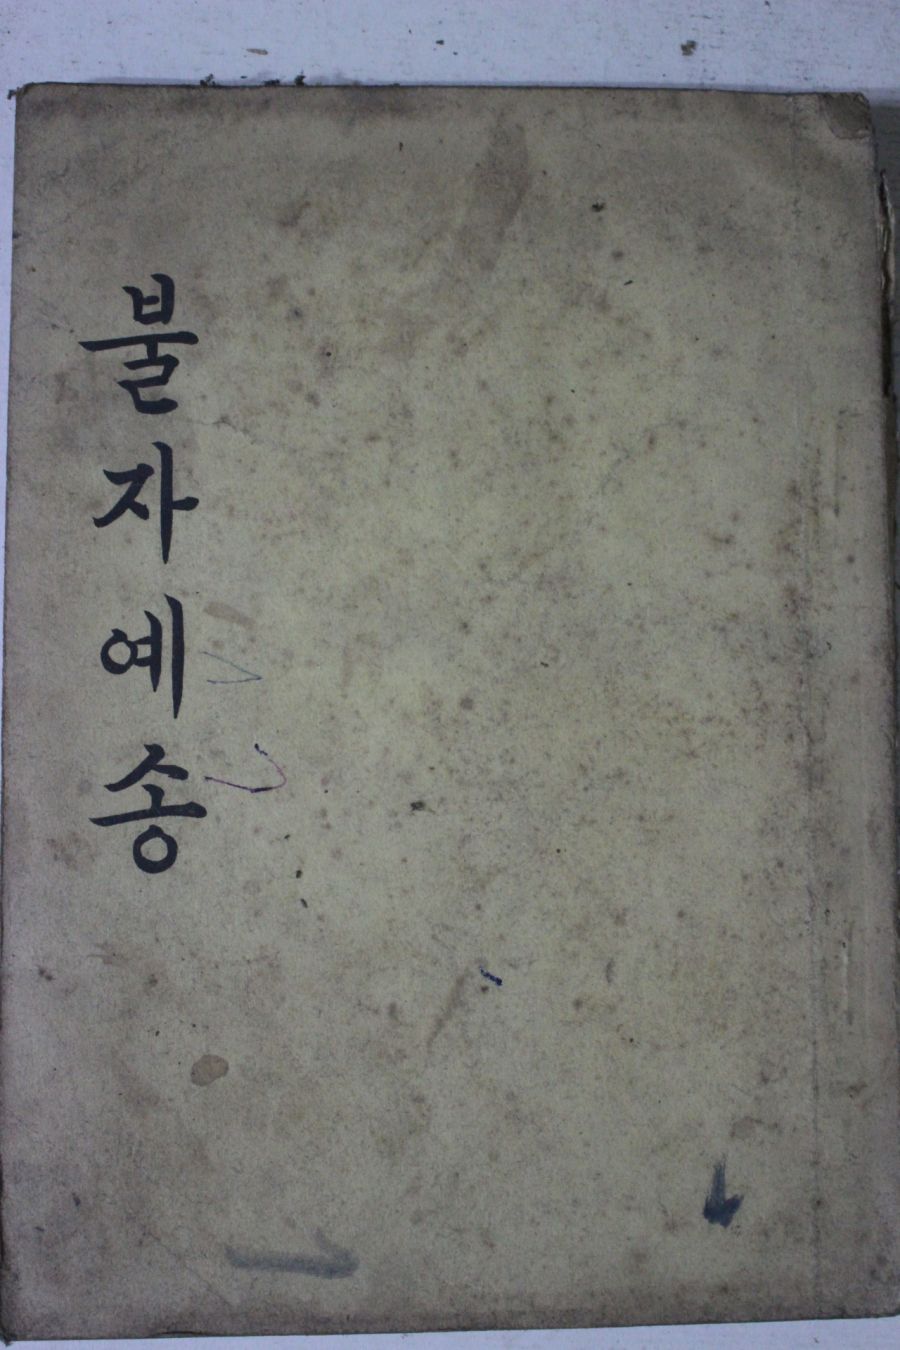 불자예송